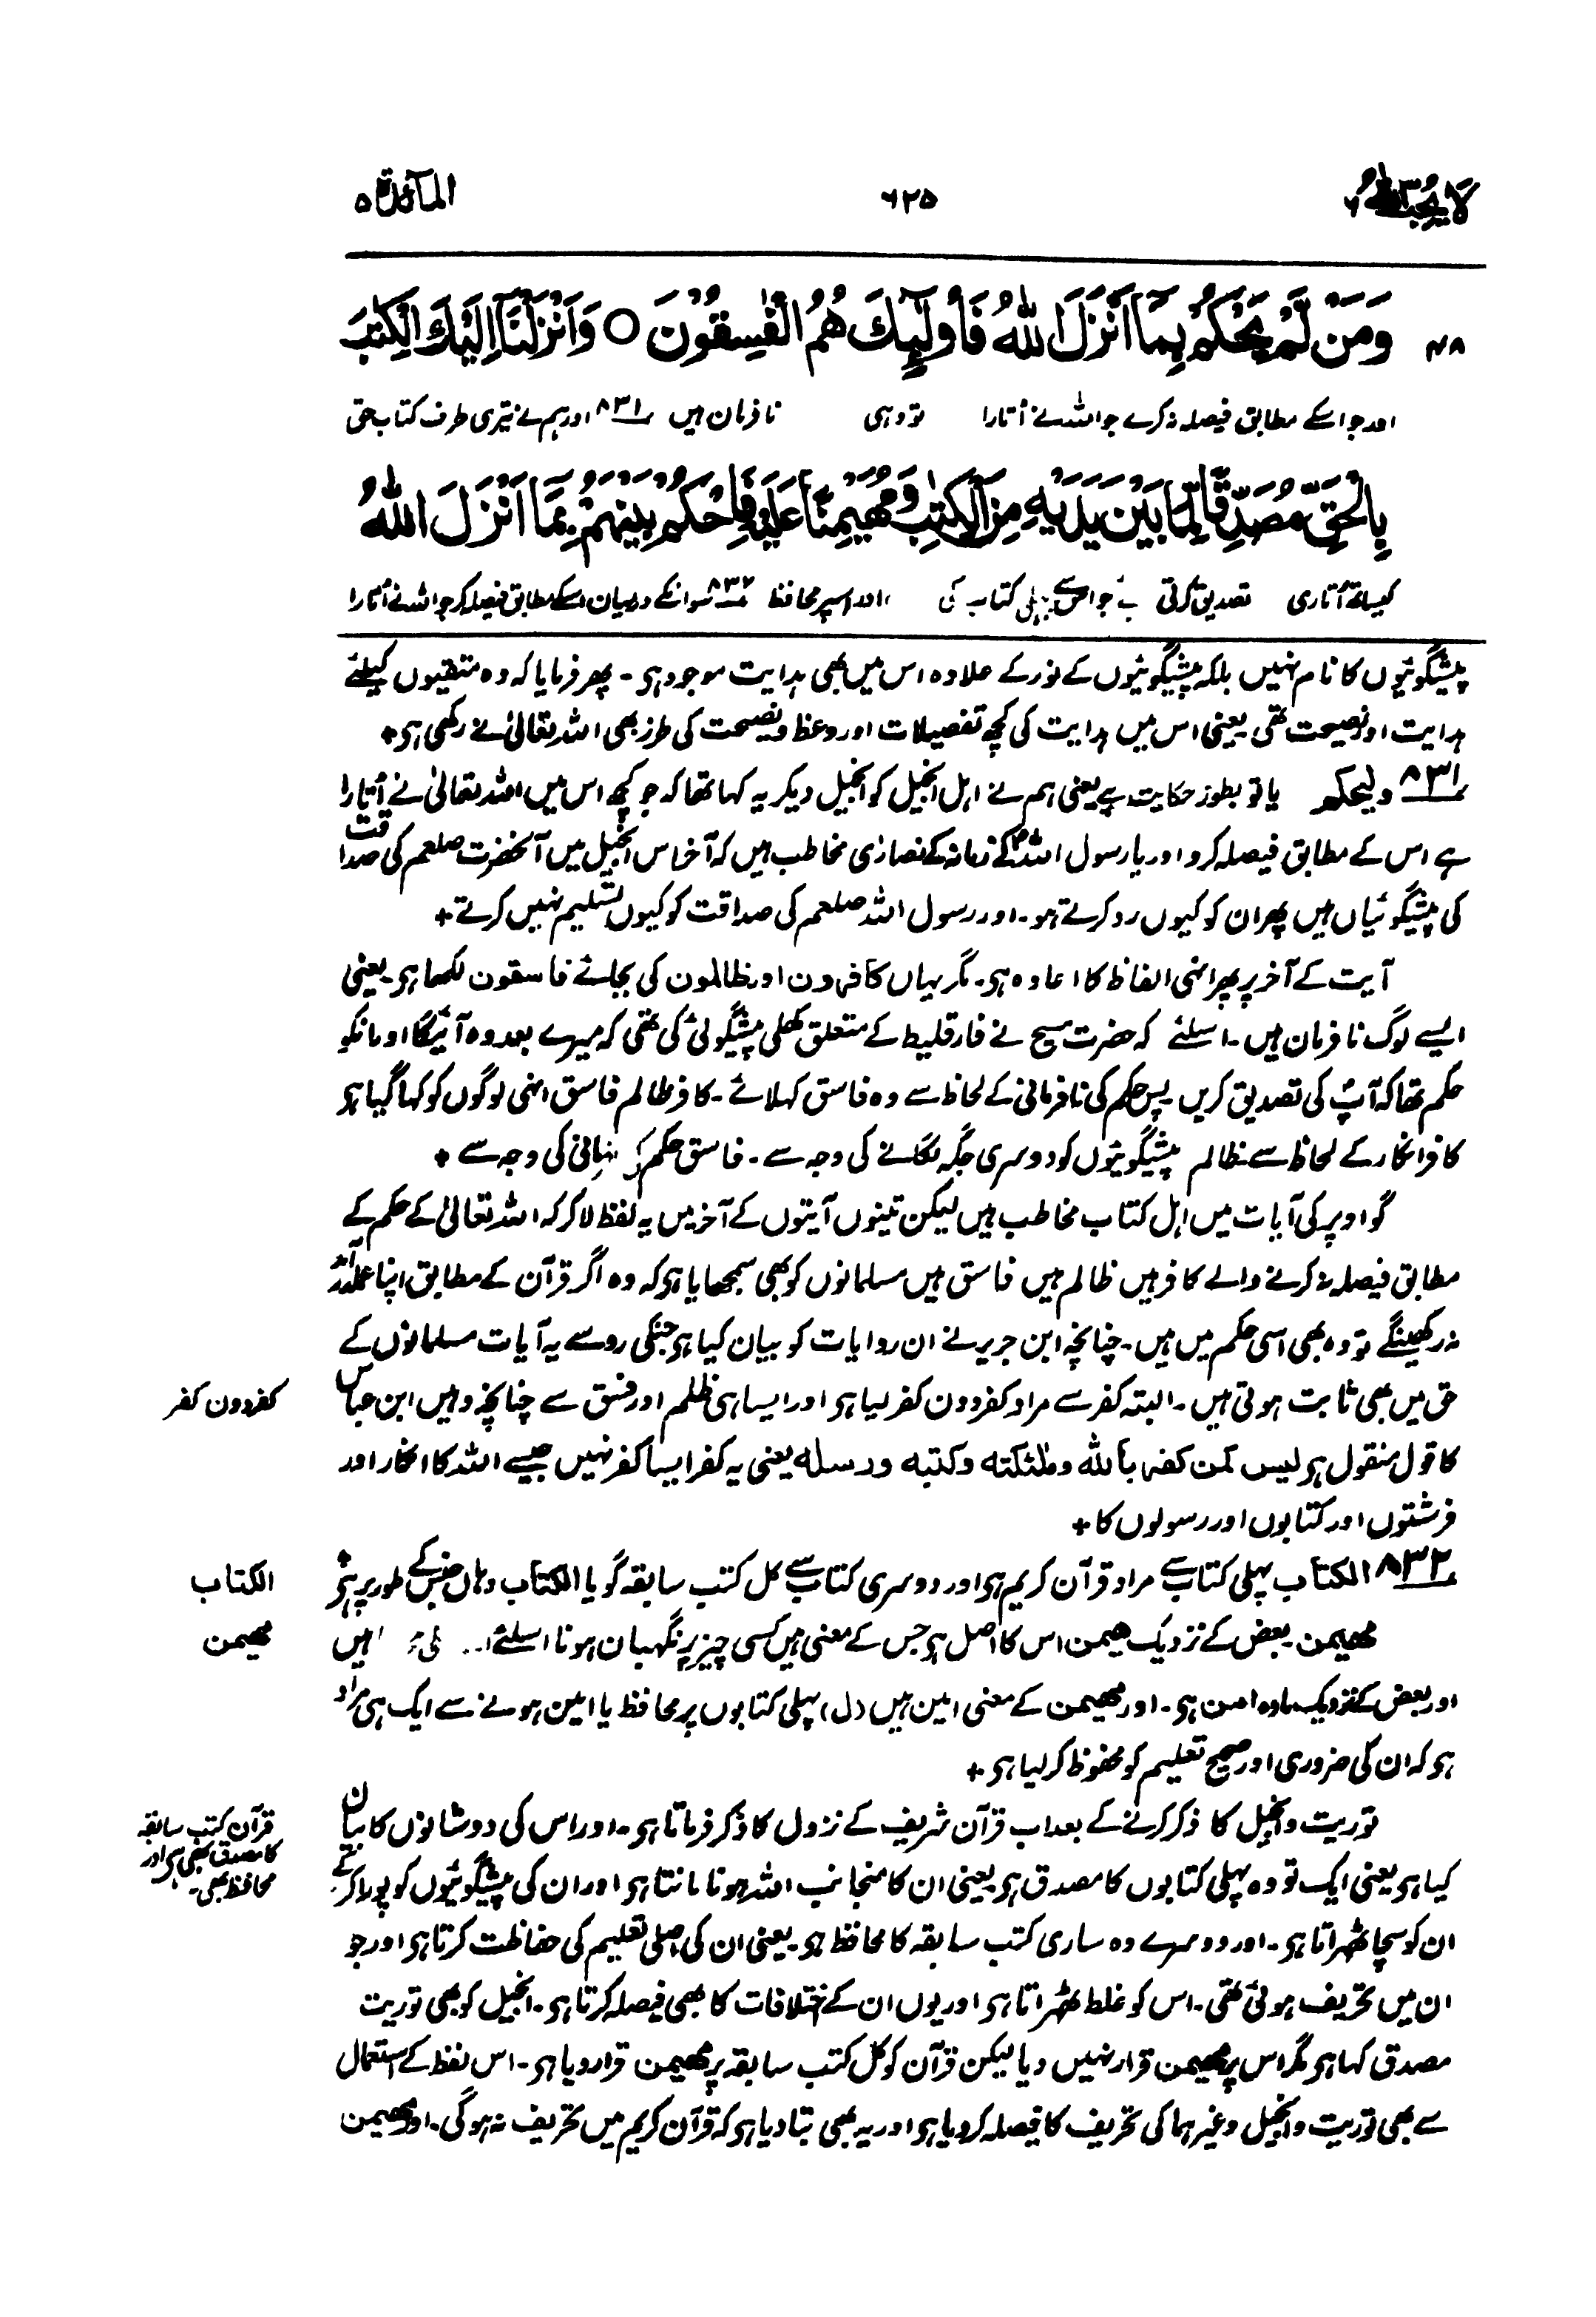 لَا يُحِبُّ اللّٰهُ ٦
٦٢٥
المآئدة ٥
٤٨ وَمَنْ لَّمْ يَحْكُمْ بِمَآ اَنْزَلَ اللّٰهُ فَاُولٰٓئِكَ هُمُ الْفٰسِقُوْنَ ○ وَاَنْزَلْنَآ اِلَيْكَ الْكِتٰبَ
اور جو اسکے مطابق فیصلہ نہ کرے جو اللہ نے اُتارا تو وہی نافرمان ہیں ۸۳۱ اور ہم نے تیری طرف کتاب حق
بِالْحَقِّ مُصَدِّقًا لِّمَا بَيْنَ يَدَيْهِ مِنَ الْكِتٰبِ وَمُهَيْمِنًا عَلَيْهِ فَاحْكُمْ بَيْنَهُمْ بِمَآ اَنْزَلَ اللّٰهُ
کیساتھ اُتاری تصدیق کرتی جو اس سے پہلی کتاب کی اور اسپر محافظ ۸۳۲ سو انکے درمیان اسکے مطابق فیصلہ کر جو اللہ نے اُتارا
پیشگوئیوں کا نام نہیں بلکہ پیشگوئیوں کے نور کے علاوہ اس میں بھی ہدایت موجود ہی۔ پھر فرمایا کہ وہ متقیوں کیلئے
ہدایت اور نصیحت تھی یعنی اس میں ہدایت کی کچھ تفصیلات اور وعظ و نصیحت کی طرز بھی اللہ تعالیٰ نے رکھی ہی+
۸۳۱ ولیحکم یا تو بطور حکایت ہے یعنی ہم نے اہل انجیل کو انجیل دیکر یہ کہا تھا کہ جو کچھ اس میں اللہ تعالیٰ نے اُتارا
ہے اس کے مطابق فیصلہ کرو اور یا رسول اللہؐ کے زمانہ کے نصاریٰ مخاطب ہیں کہ آخر اس انجیل میں آنحضرت صلعم کی صداقت
کی پیشگوئیاں ہیں پھر ان کو کیوں رد کرتے ہو۔ اور رسول اللہ صلعم کی صداقت کو کیوں تسلیم نہیں کرتے+
آیت کے آخر پر پھر انہی الفاظ کا اعادہ ہی۔ مگر یہاں کافرون اور ظالمون کی بجائے فاسقون لکھا ہی۔ یعنی
ایسے لوگ نافرمان ہیں۔ اسلئے کہ حضرت مسیح نے فارقلیط کے متعلق کھلی پیشگوئی کی تھی کہ میرے بعد وہ آئیگا اور انکو
حکم تھا کہ آپؐ کی تصدیق کریں۔ پس حکم کی نافرمانی کے لحاظ سے وہ فاسق کہلائے۔ کافر ظالم فاسق انہی لوگوں کو کہا گیا ہی
کافر انکار کے لحاظ سے۔ ظالم پیشگوئیوں کو دوسری جگہ لگانے کی وجہ سے۔ فاسق حکم کی وجہ سے +
گو اوپر کی آیات میں اہل کتاب مخاطب ہیں لیکن تینوں آیتوں کے آخر میں یہ لفظ لا کر کہ اللہ تعالیٰ کے حکم کے
مطابق فیصلہ نہ کرنے والے کافر ہیں ظالم ہیں فاسق ہیں مسلمانوں کو بھی سمجھایا ہی کہ وہ اگر قرآن کے مطابق اپنا عملدرآمد
نہ رکھینگے تو وہ بھی اسی حکم میں ہیں۔ چنانچہ ابن جریر نے ان روایات کو بیان کیا ہی جنکی رو سے یہ آیات مسلمانوں کے
حق میں بھی ثابت ہوتی ہیں۔ البتہ کفر سے مراد کفر دون کفر لیا ہی اور ایسا ہی ظلم اور فسق سے چنانچہ وہیں ابن عباس
کفر دون کفر
کا قول منقول ہی لیس کمن کفر باللہ وملٰئکتہ وکتبہ ورسلہ یعنی یہ کفر ایسا کفر نہیں جیسے اللہ کا انکار اور
فرشتوں اور کتابوں اور رسولوں کا+
۸۳۲ الکتاب پہلی کتاب سے مراد قرآن کریم ہی اور دوسری کتاب سے کل کتب سابقہ گویا الکتاب وہاں جنس کے طور پر ہی+
الکتاب
مھیمن۔ بعض کے نزدیک ھیمن اس کا اصل ہی جس کے معنی ہیں کسی چیز پر نگہبان ہونا اسلئے ہیں
مھیمن
اور بعض کے نزدیک مادہ امن ہی۔ اور مھیمن کے معنی امین ہیں (ل)، پہلی کتابوں پر محافظ یا امین ہونے سے ایک ہی مراد
ہی کہ ان کی ضروری اور صحیح تعلیم کو محفوظ کر لیا ہی+
توریت و انجیل کا ذکر کرنے کے بعد اب قرآن شریف کے نزول کا ذکر فرماتا ہی۔ اور اس کی دو شانوں کا بیان
قرآن کتب سابقہ
کا مصدق بھی ہی اور
محافظ بھی۔
کیا ہی یعنی ایک تو وہ پہلی کتابوں کا مصدق ہی یعنی ان کا منجانب اللہ ہونا مانتا ہی اور ان کی پیشگوئیوں کو پورا کر کے
ان کو سچا ٹھہراتا ہی۔ اور دوسرے وہ ساری کتب سابقہ کا محافظ ہی۔ یعنی ان کی اصلی تعلیم کی حفاظت کرتا ہی اور جو
ان میں تحریف ہوئی تھی۔ اس کو غلط ٹھہراتا ہی اور یوں ان کے اختلافات کا بھی فیصلہ کرتا ہی۔ انجیل کو بھی توریت
مصدق کہا ہی مگر اس پر مھیمن قرار نہیں دیا لیکن قرآن کو کل کتب سابقہ پر مھیمن قرار دیا ہی۔ اس لفظ کے استعمال
سے بھی توریت و انجیل وغیرہما کی تحریف کا فیصلہ کر دیا ہی اور یہ بھی بتا دیا ہی کہ قرآن کریم میں تحریف نہ ہو گی۔ اور مھیمن